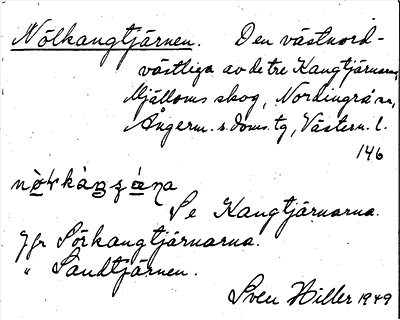 Nölkangtjärnen. Den västnord-
västliga av de tre Kangtjärnarna,
Mjälloms skog, Nordingrå sn,
Ångerm. s. doms. tg, Västern. l.
146
Se Kangtjärnarna.
Jfr Sörkangtjärnarna.
" Sandtjärnen.
Sven Hiller 1949